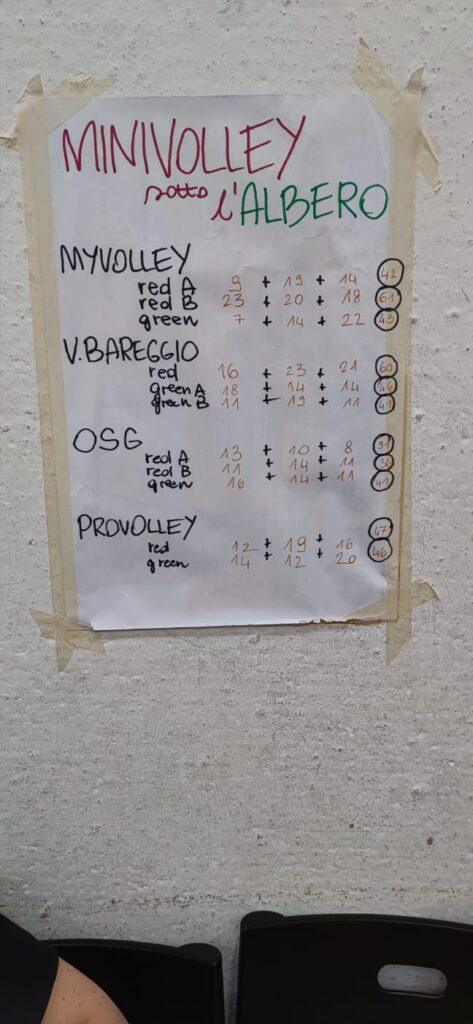 MINIVOLLEY
sotto l'ALBERO
MYVOLLEY
red A 9 + 19 + 14 42
red B 23 + 20 + 18 61
green 7 + 14 + 22 43
V.BAREGGIO
red 16 + 23 + 21 60
green A 18 + 14 + 14 46
green B 11 + 19 + 11 41
OSG
red A 13 + 10 + 8 31
red B 11 + 14 + 11 36
green 16 + 14 + 11 41
PROVOLLEY
red 12 + 19 + 16 47
green 14 + 12 + 20 46